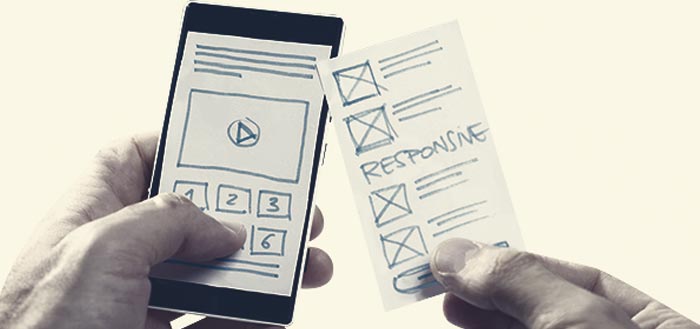 1 2 3
6
RESPONSIVE